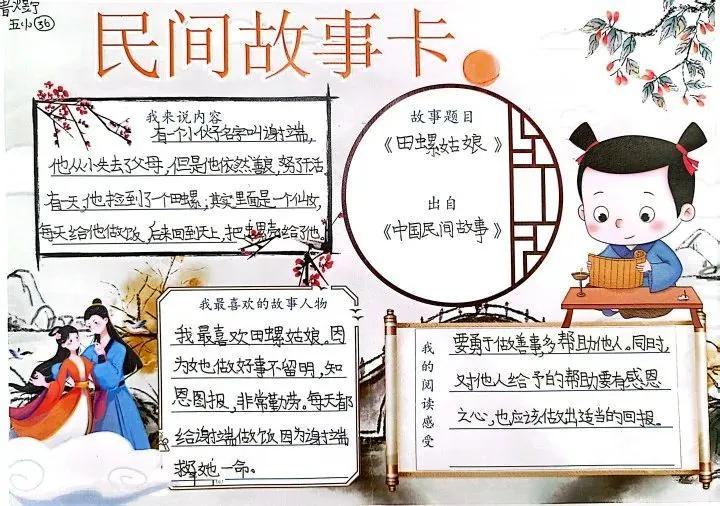 五小36
民间故事卡
我来说内容
有一个小伙子名字叫谢端,
他从小失去了父母,但是他依然善良,努力干活
有一天,他捡到了一个田螺;其实里面是一个仙女,
每天给他做饭,后来回到天上,把田螺壳给了他
故事题目
《田螺姑娘》
出自
《中国民间故事》
我最喜欢的故事人物
我最喜欢田螺姑娘。因
为她做好事不留明,知
恩图报,非常勤劳。每天都
给谢端做饭因为谢端
救她一命。
我的阅读感受
要勇于做善事多帮助他人。同时,
对他人给予的帮助要有感恩
之心,也应该做出适当的回报。